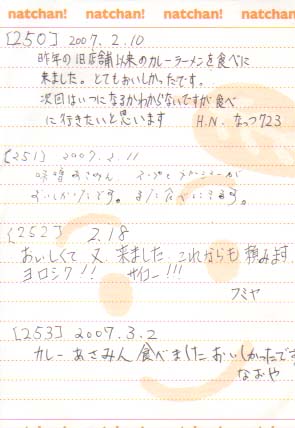 natchan! natchan! natchan! natchan!
[250] 2007.2.10
昨年の旧店舗以来のカレーラーメンを食べに
来ました。とてもおいしかったです。
次回はいつになるかわからないですが食べ
に行きたいと思います H.N. なっつ723
[251] 2007.2.11
味噌あさめん スープとメンマが
おいしかったです。また食べにきます。
[252] 2.18
おいしくて 又 来ました これからも 頼みます
ヨロシク!! サイコー!!!
フミヤ
[253] 2007.3.2
カレーあさみん 食べました おいしかったです
なおや